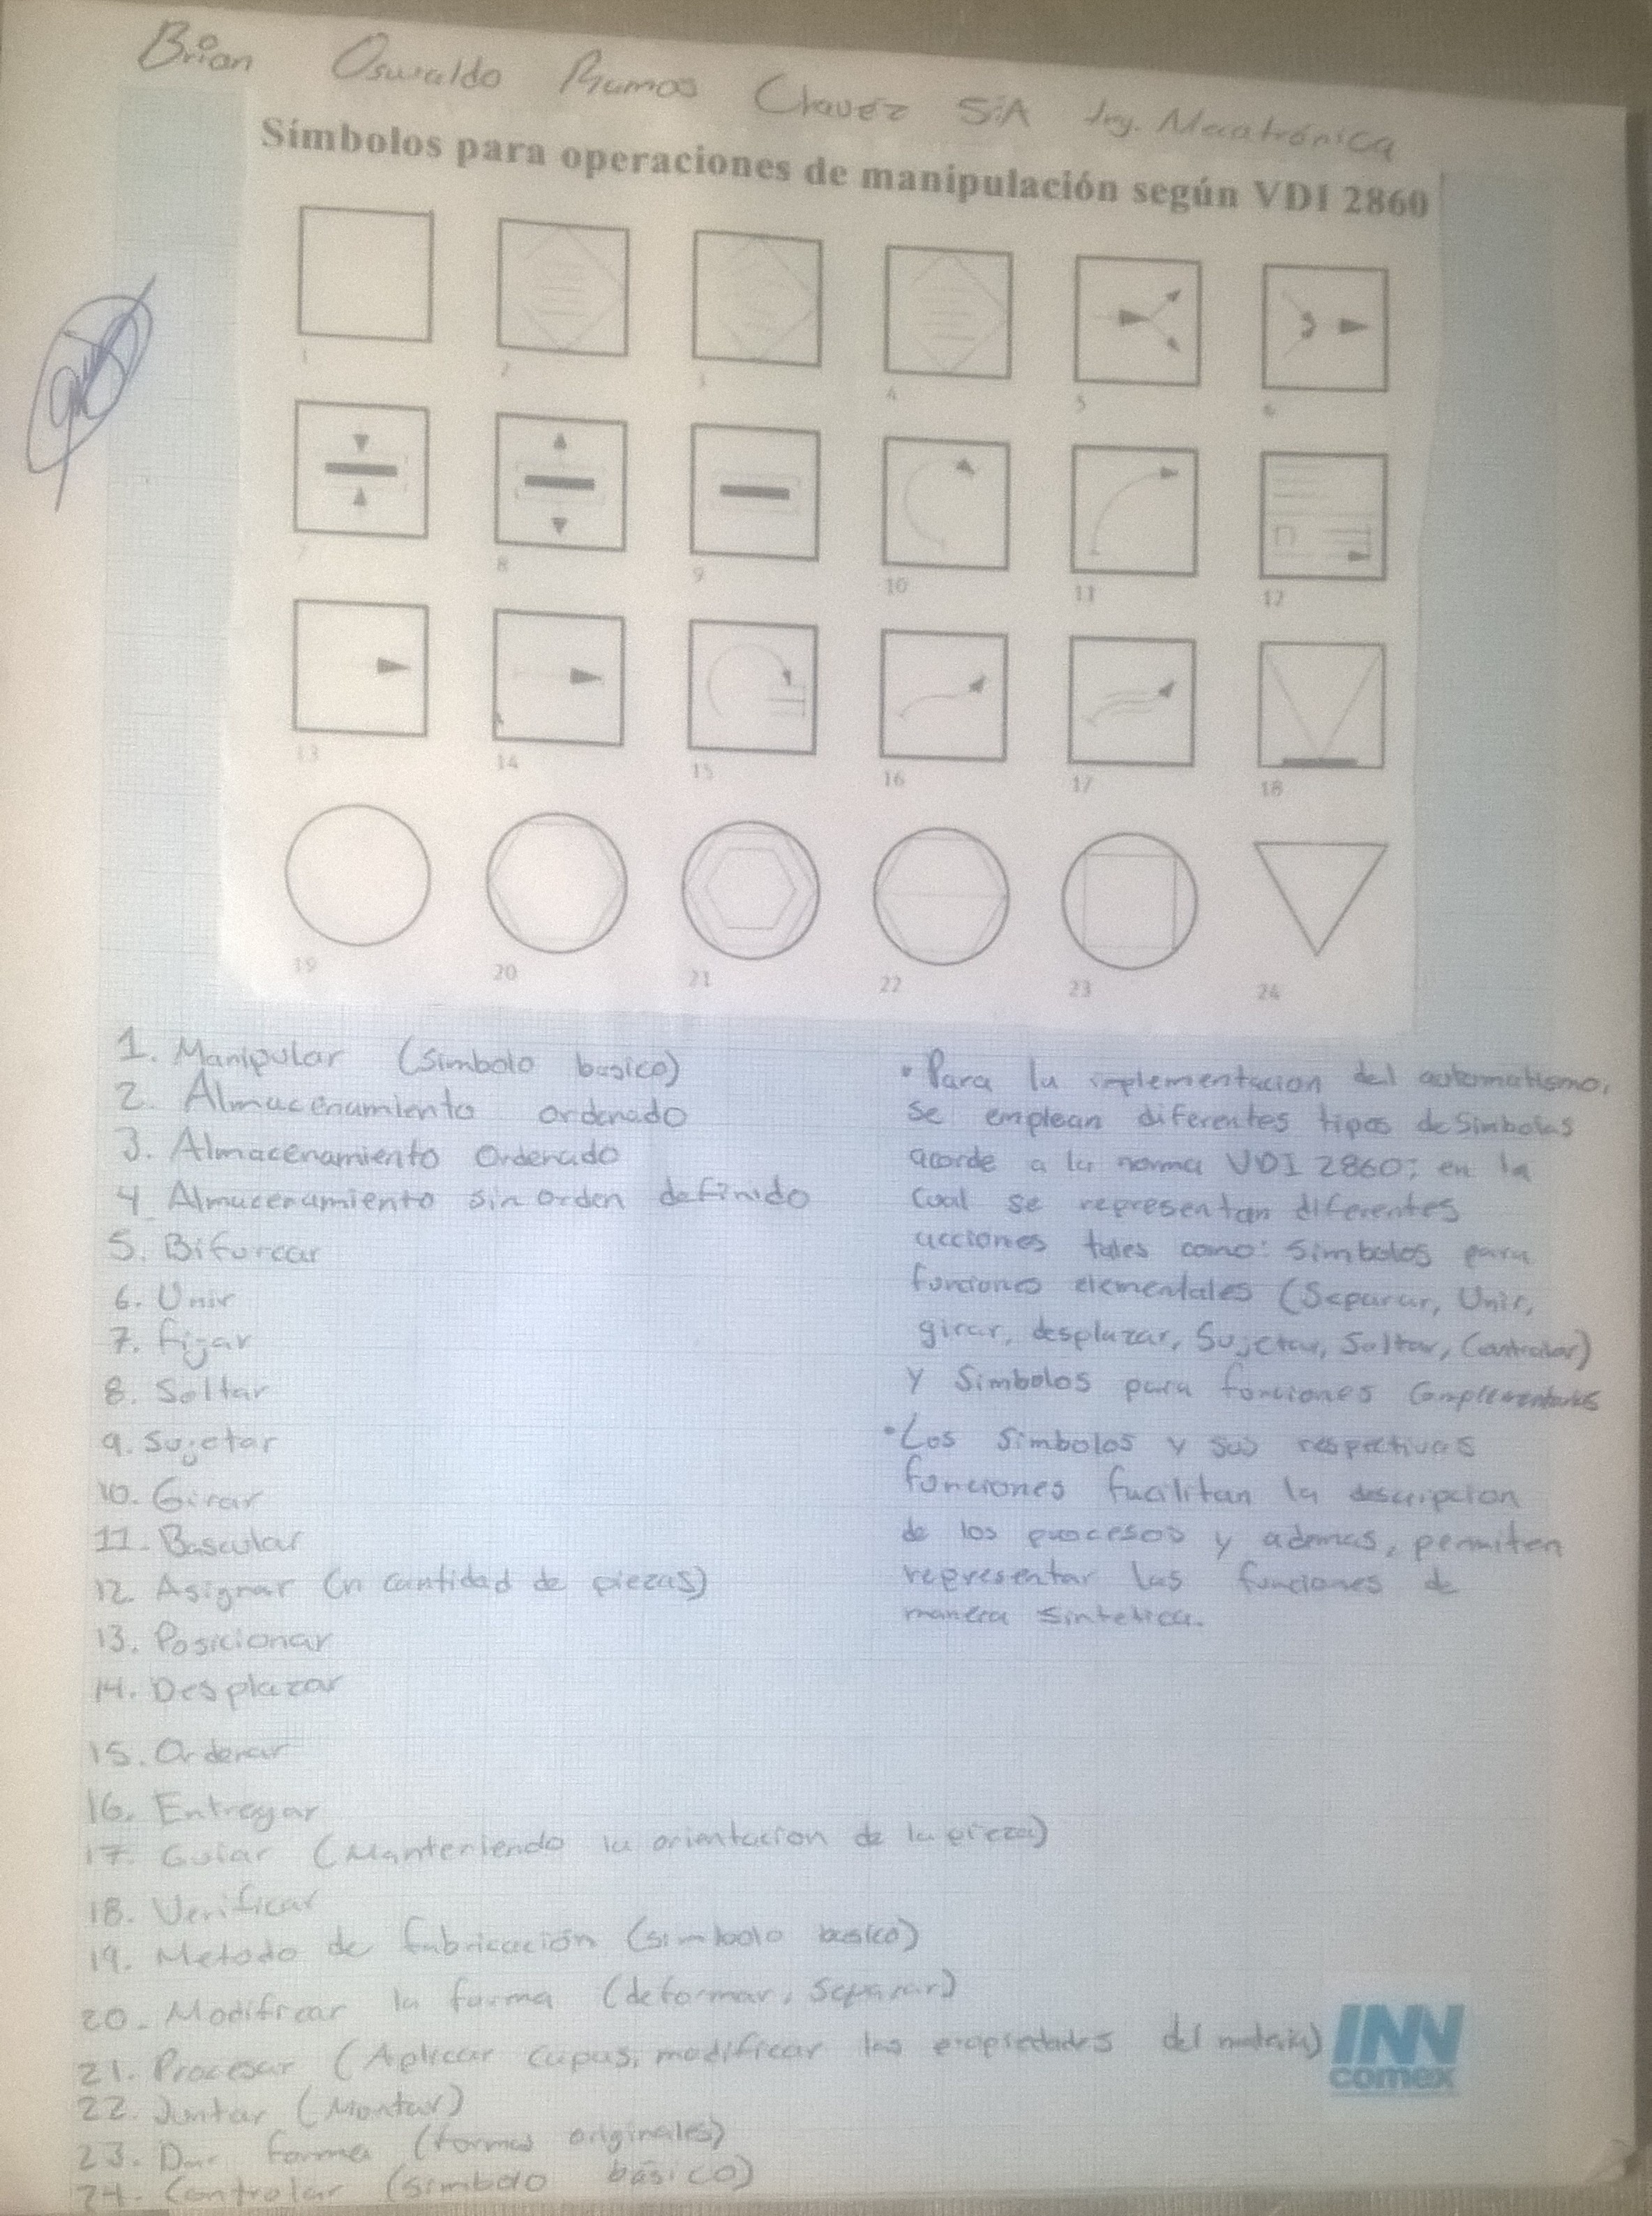 Brian Oswaldo Ramos Chavez 5°A Ing. Mecatrónica
Símbolos para operaciones de manipulación según VDI 2860
1 2 3 4 5 6
7 8 9 10 11 12
13 14 15 16 17 18
19 20 21 22 23 24
1. Manipular (simbolo basico)
2. Almacenamiento ordenado
3. Almacenamiento Ordenado
4 Almacenamiento sin orden definido
5. Bifurcar
6. Unir
7. fijar
8. Soltar
9. Sujetar
10. Girar
11. Bascular
12. Asignar (n cantidad de piezas)
13. Posicionar
14. Desplazar
15. Ordenar
16. Entregar
17. Guiar (Manteniendo la orientacion de la pieza)
18. Verificar
19. Metodo de fabricación (simbolo basico)
20. Modificar la forma (deformar, Separar)
21. Procesar (Aplicar Capas, modificar las propiedades del material)
22. Juntar (Montar)
23. Dar forma (formas originales)
24. Controlar (simbolo básico)
• Para la implementacion del automatismo,
se emplean diferentes tipos de Simbolos
acorde a la norma VDI 2860; en la
cual se representan diferentes
acciones tales como: Simbolos para
funciones elementales (Separar, Unir,
girar, desplazar, Sujetar, Soltar, Controlar)
y Simbolos para funciones Complementarias
• Los Simbolos y sus respectivas
funciones facilitan la descripcion
de los procesos y ademas, permiten
representar las funciones de
manera sintetica.
INN
comex